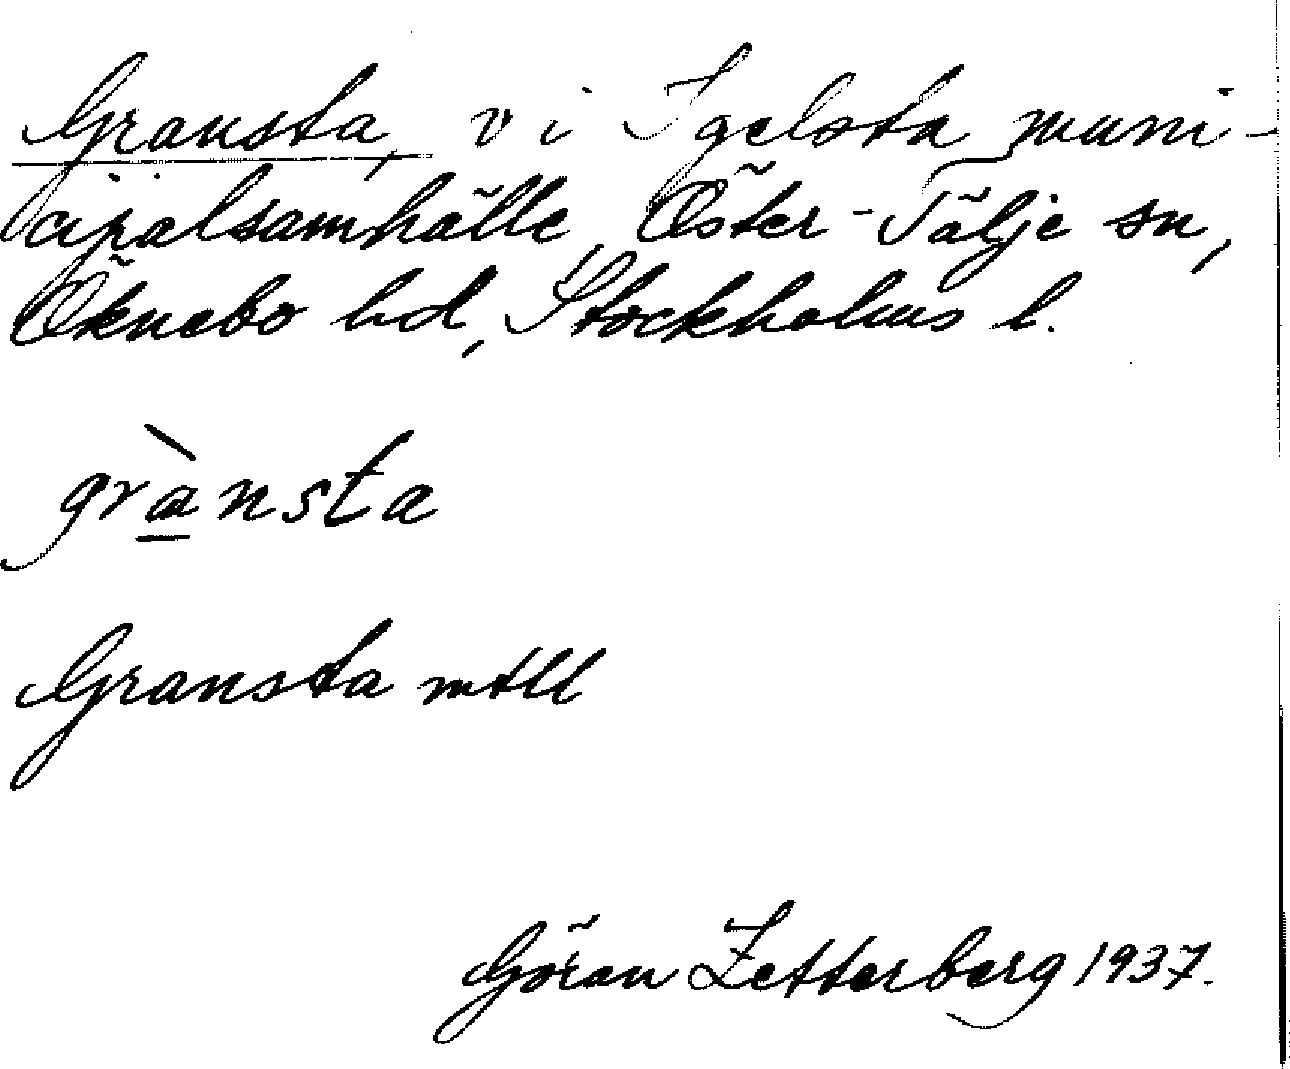 Gransta, v i Igelsta muni-
cipalsamhälle, Öster-Tälje sn,
Öknebo hd, Stockholms l.
grànsta
Gransta mtll
Göran Zetterberg 1937.